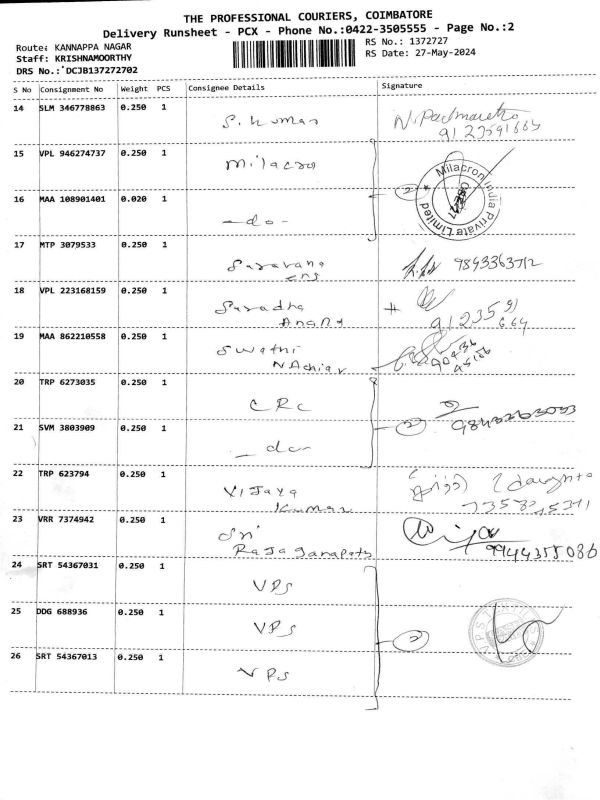 THE PROFESSIONAL COURIERS, COIMBATORE
Delivery Runsheet - PCX - Phone No.:0422-3505555 - Page No.:2
Route: KANNAPPA NAGAR
RS No.: 1372727
Staff: KRISHNAMOORTHY
RS Date: 27-May-2024
DRS No.: DCJB137272702
S No Consignment No Weight PCS Consignee Details Signature
14 SLM 346778863 0.250 1 S. Kumar
15 VPL 946274737 0.250 1 Milacron
16 MAA 108901401 0.020 1 -do-
Milacron India Private Limited
17 MTP 3079533 0.250 1 Saravana 9893363712
Ens
18 VPL 223168159 0.250 1 Saradha 91235 91
Anand 664
19 MAA 862210558 0.250 1 Swathi 90436
NAchiar 45166
20 TRP 6273035 0.250 1 CRC
21 SVM 3803909 0.250 1 -do-
22 TRP 623794 0.250 1 VIJAYA daughter
Kumar
23 VRR 7374942 0.250 1 Sri
RAJA Ganapathy 9944355086
24 SRT 54367031 0.250 1 VPS
25 DDG 688936 0.250 1 VPS
26 SRT 54367013 0.250 1 VPS